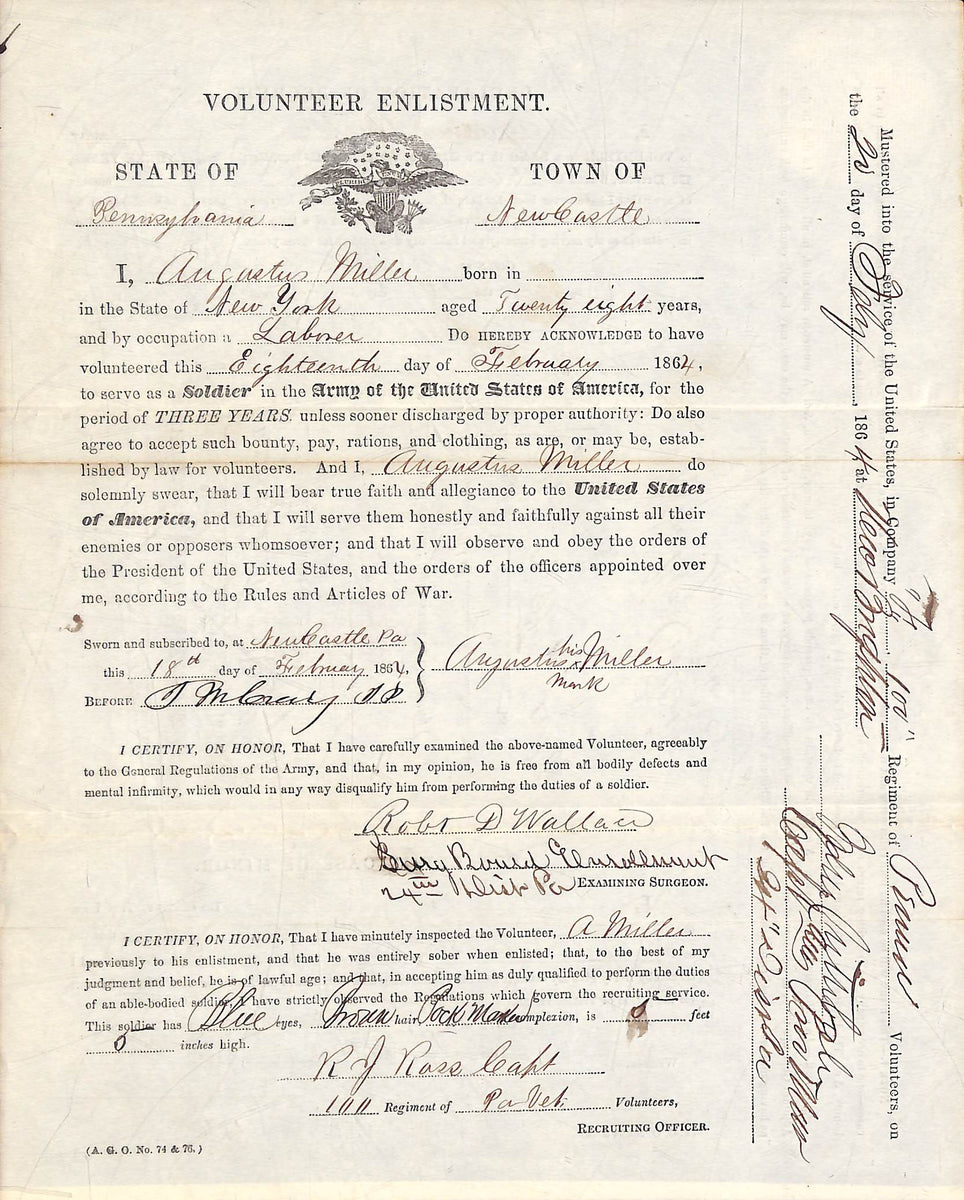 VOLUNTEER ENLISTMENT.
STATE OF TOWN OF
Pennsylvania NewCastle
I, Augustus Miller born in
in the State of New York aged Twenty eight years,
and by occupation a Laborer Do HEREBY ACKNOWLEDGE to have
volunteered this Eighteenth day of February 1864,
to serve as a Soldier in the Army of the United States of America, for the
period of THREE YEARS. unless sooner discharged by proper authority: Do also
agree to accept such bounty, pay, rations, and clothing, as are, or may be, estab-
lished by law for volunteers. And I, Augustus Miller do
solemnly swear, that I will bear true faith and allegiance to the United States
of America, and that I will serve them honestly and faithfully against all their
enemies or opposers whomsoever; and that I will observe and obey the orders of
the President of the United States, and the orders of the officers appointed over
me, according to the Rules and Articles of War.
Sworn and subscribed to, at NewCastle Pa
this 18th day of February 1864,
BEFORE
Augustus his x Miller
Mark
I CERTIFY, ON HONOR, That I have carefully examined the above-named Volunteer, agreeably
to the General Regulations of the Army, and that, in my opinion, he is free from all bodily defects and
mental infirmity, which would in any way disqualify him from performing the duties of a soldier.
Robt D Wallace
Board Enrollment
24th Dist Pa EXAMINING SURGEON.
I CERTIFY, ON HONOR, That I have minutely inspected the Volunteer, A Miller
previously to his enlistment, and that he was entirely sober when enlisted; that, to the best of my
judgment and belief, he is of lawful age; and that, in accepting him as duly qualified to perform the duties
of an able-bodied soldier, I have strictly observed the Regulations which govern the recruiting service.
This soldier has Blue eyes, Brown hair, Pock Marked complexion, is 5 feet
inches high.
R J Ross Capt
100 Regiment of Pa Vet Volunteers,
RECRUITING OFFICER.
(A. G. O. No. 74 & 76.)
Mustered into the service of the United States, in Company 100" Regiment of Penna Volunteers, on
the day of 1864, at New Brighton